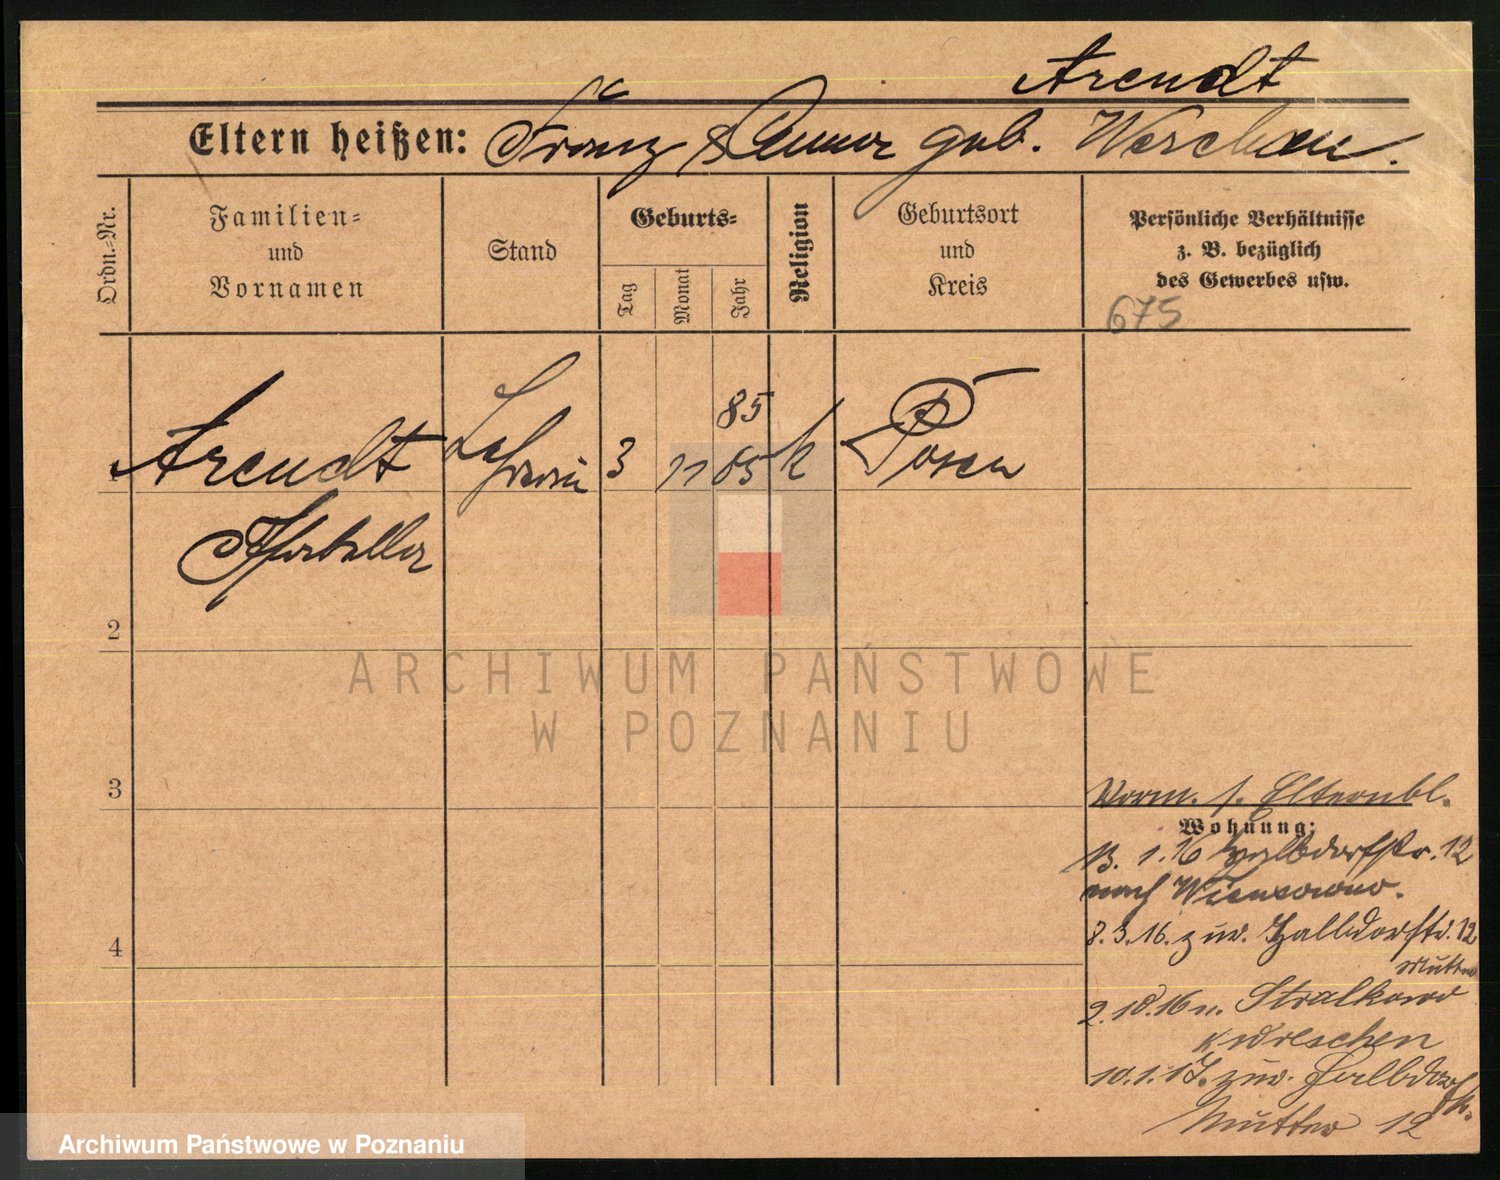 Arendt
Eltern heißen: Franz & Anna geb. Werchan.
Ordn.-Nr.
Familien-
und
Vornamen
Stand
Geburts-
Tag
Monat
Jahr
Religion
Geburtsort
und
Kreis
Persönliche Verhältnisse
z. B. bezüglich
des Gewerbes usw.
675
85
1 Arendt 3 11 85 k Posen
2
3
Vorm. s. Elternbl.
Wohnung:
13. 1. 16 Halbdorfstr. 12
nach
8. 3. 16. zur. Halbdorfstr. 12
Mutter
4
2. 10. 16 n. Stralkowo
K Wreschen
10. 1. 17. zur. Halbdorfstr.
Mutter 12
ARCHIWUM PAŃSTWOWE
W POZNANIU
Archiwum Państwowe w Poznaniu